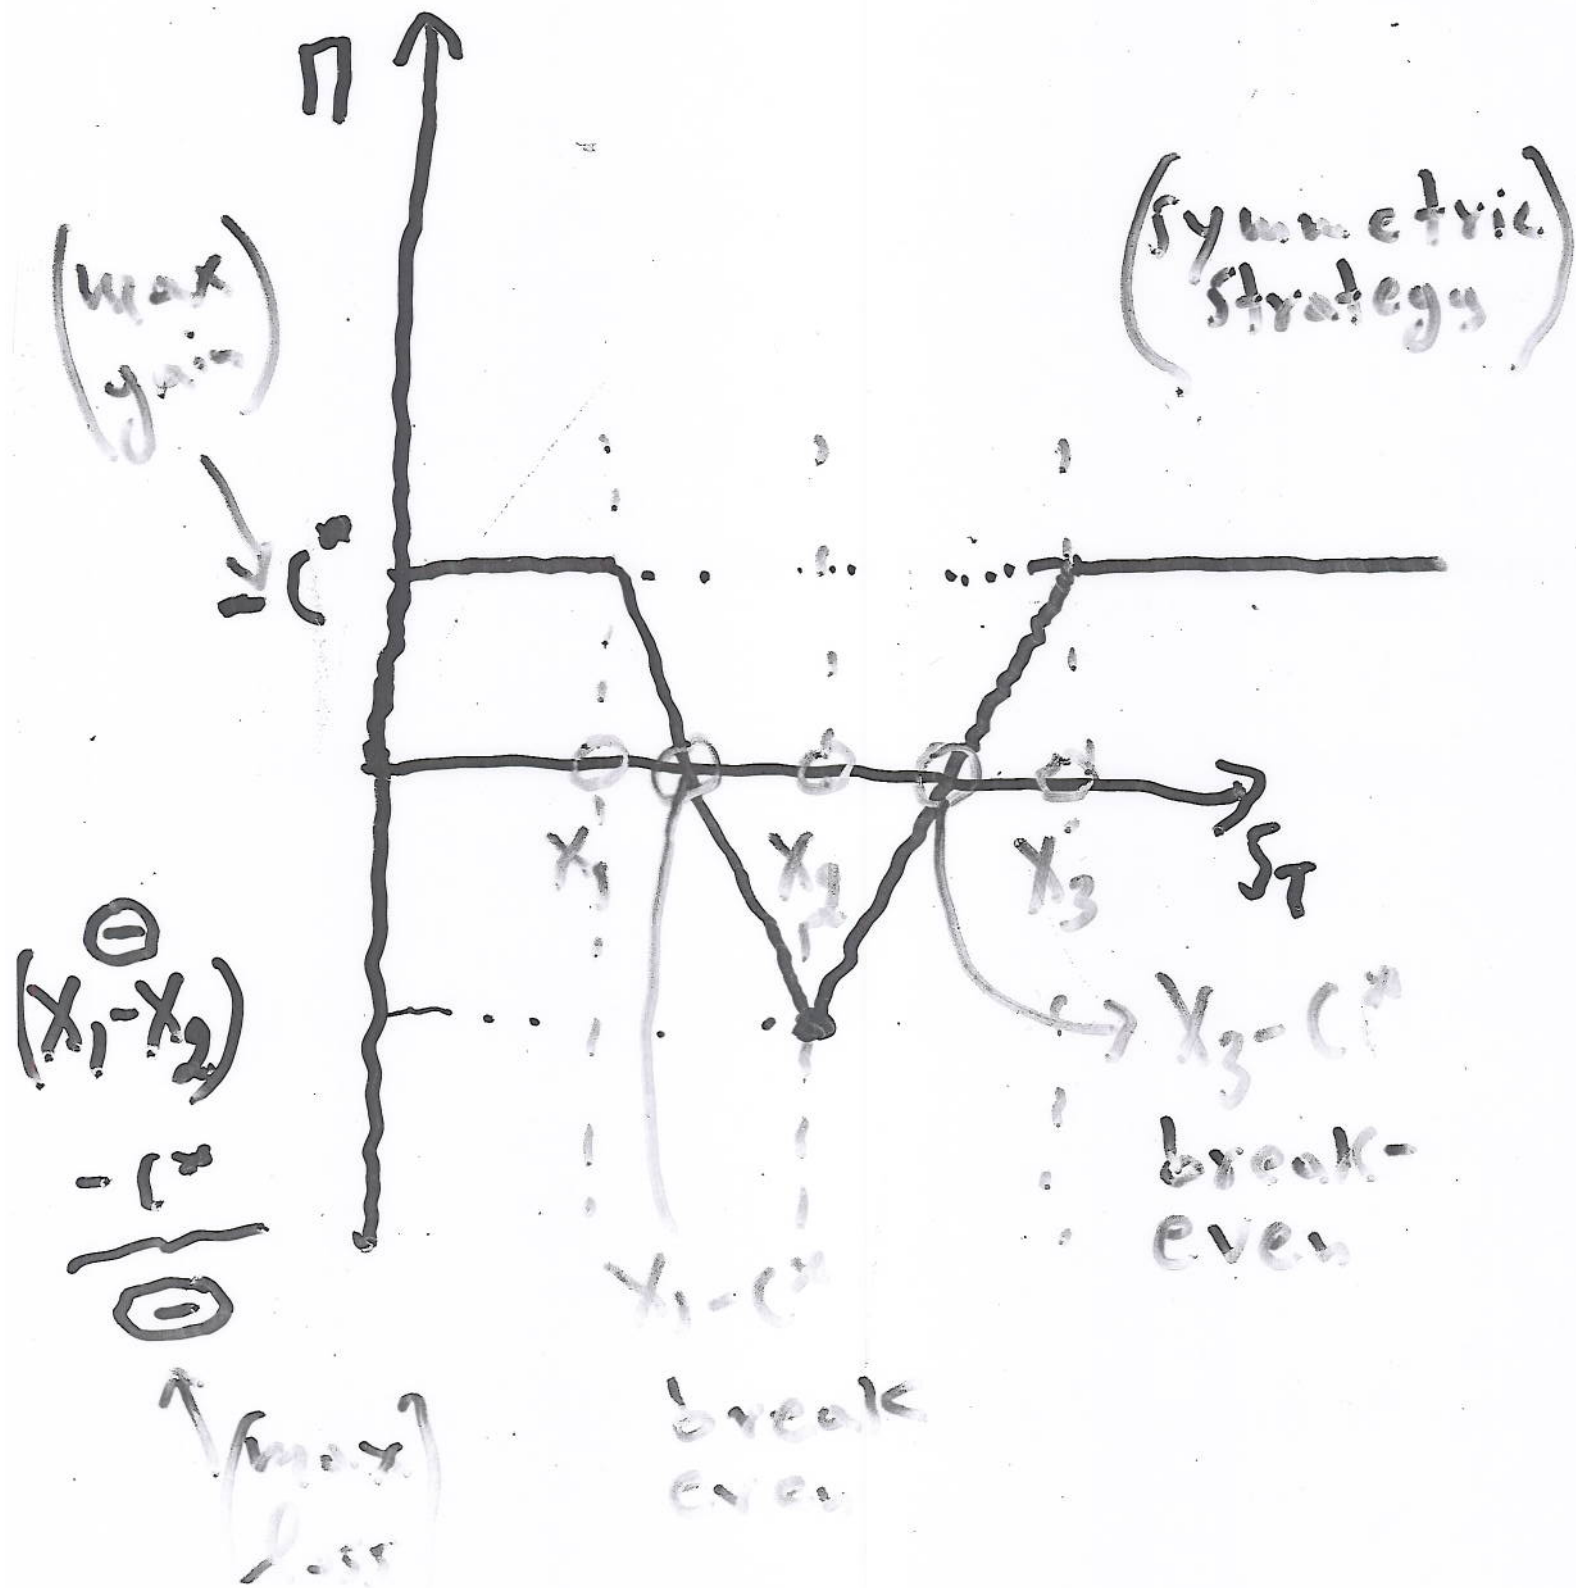 Π
(max
gain)
(symmetric
strategy)
-C*
X₁
X₂
X₃
S_T
⊖
(X₁-X₂)
-C*
⊖
(max
loss)
X₁-C*
break
even
X₃-C*
break-
even